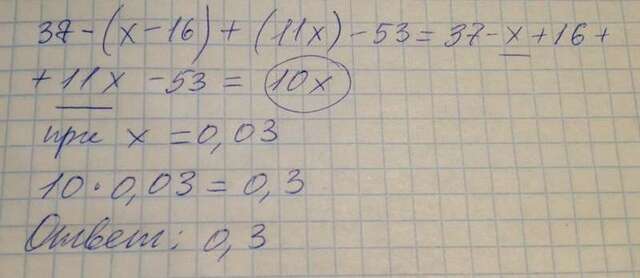 37-(x-16)+(11x)-53=37-x+16+
+11x-53=10x
при x=0,03
10·0,03=0,3
Ответ: 0,3